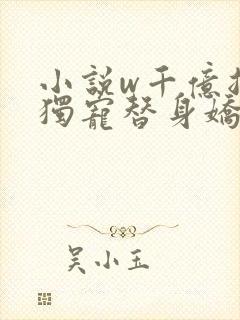 小說w千億
獨寵替身嬌
吳小玉